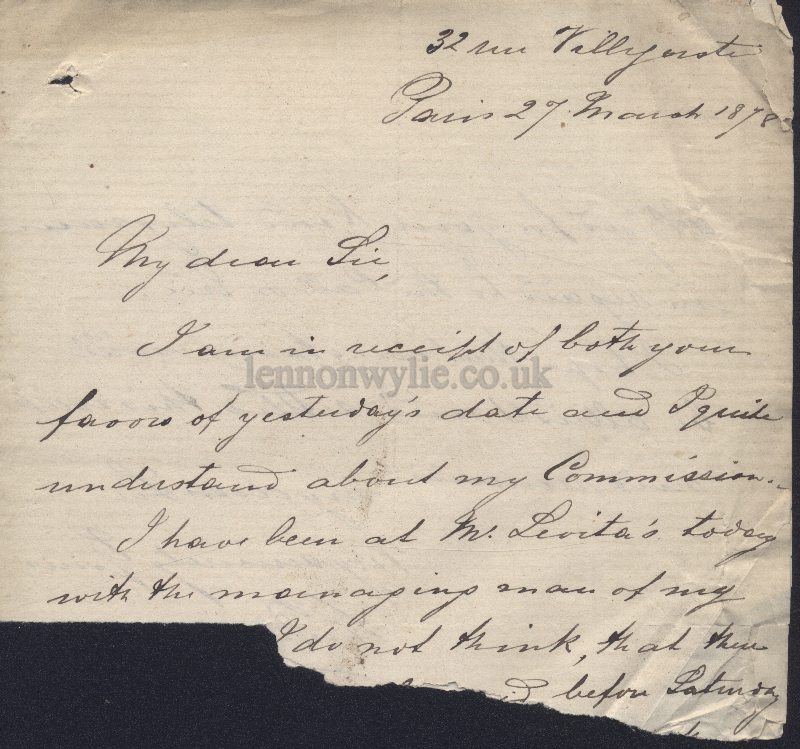 32 rue
Paris 27 March 1878
My dear Sir,
I am in receipt of both your
lennonwylie.co.uk
favors of yesterday's date and I quite
understand about my Commission.
I have been at Mr. Levita's today
with the managing man of my
I do not think, that there
before Saturday